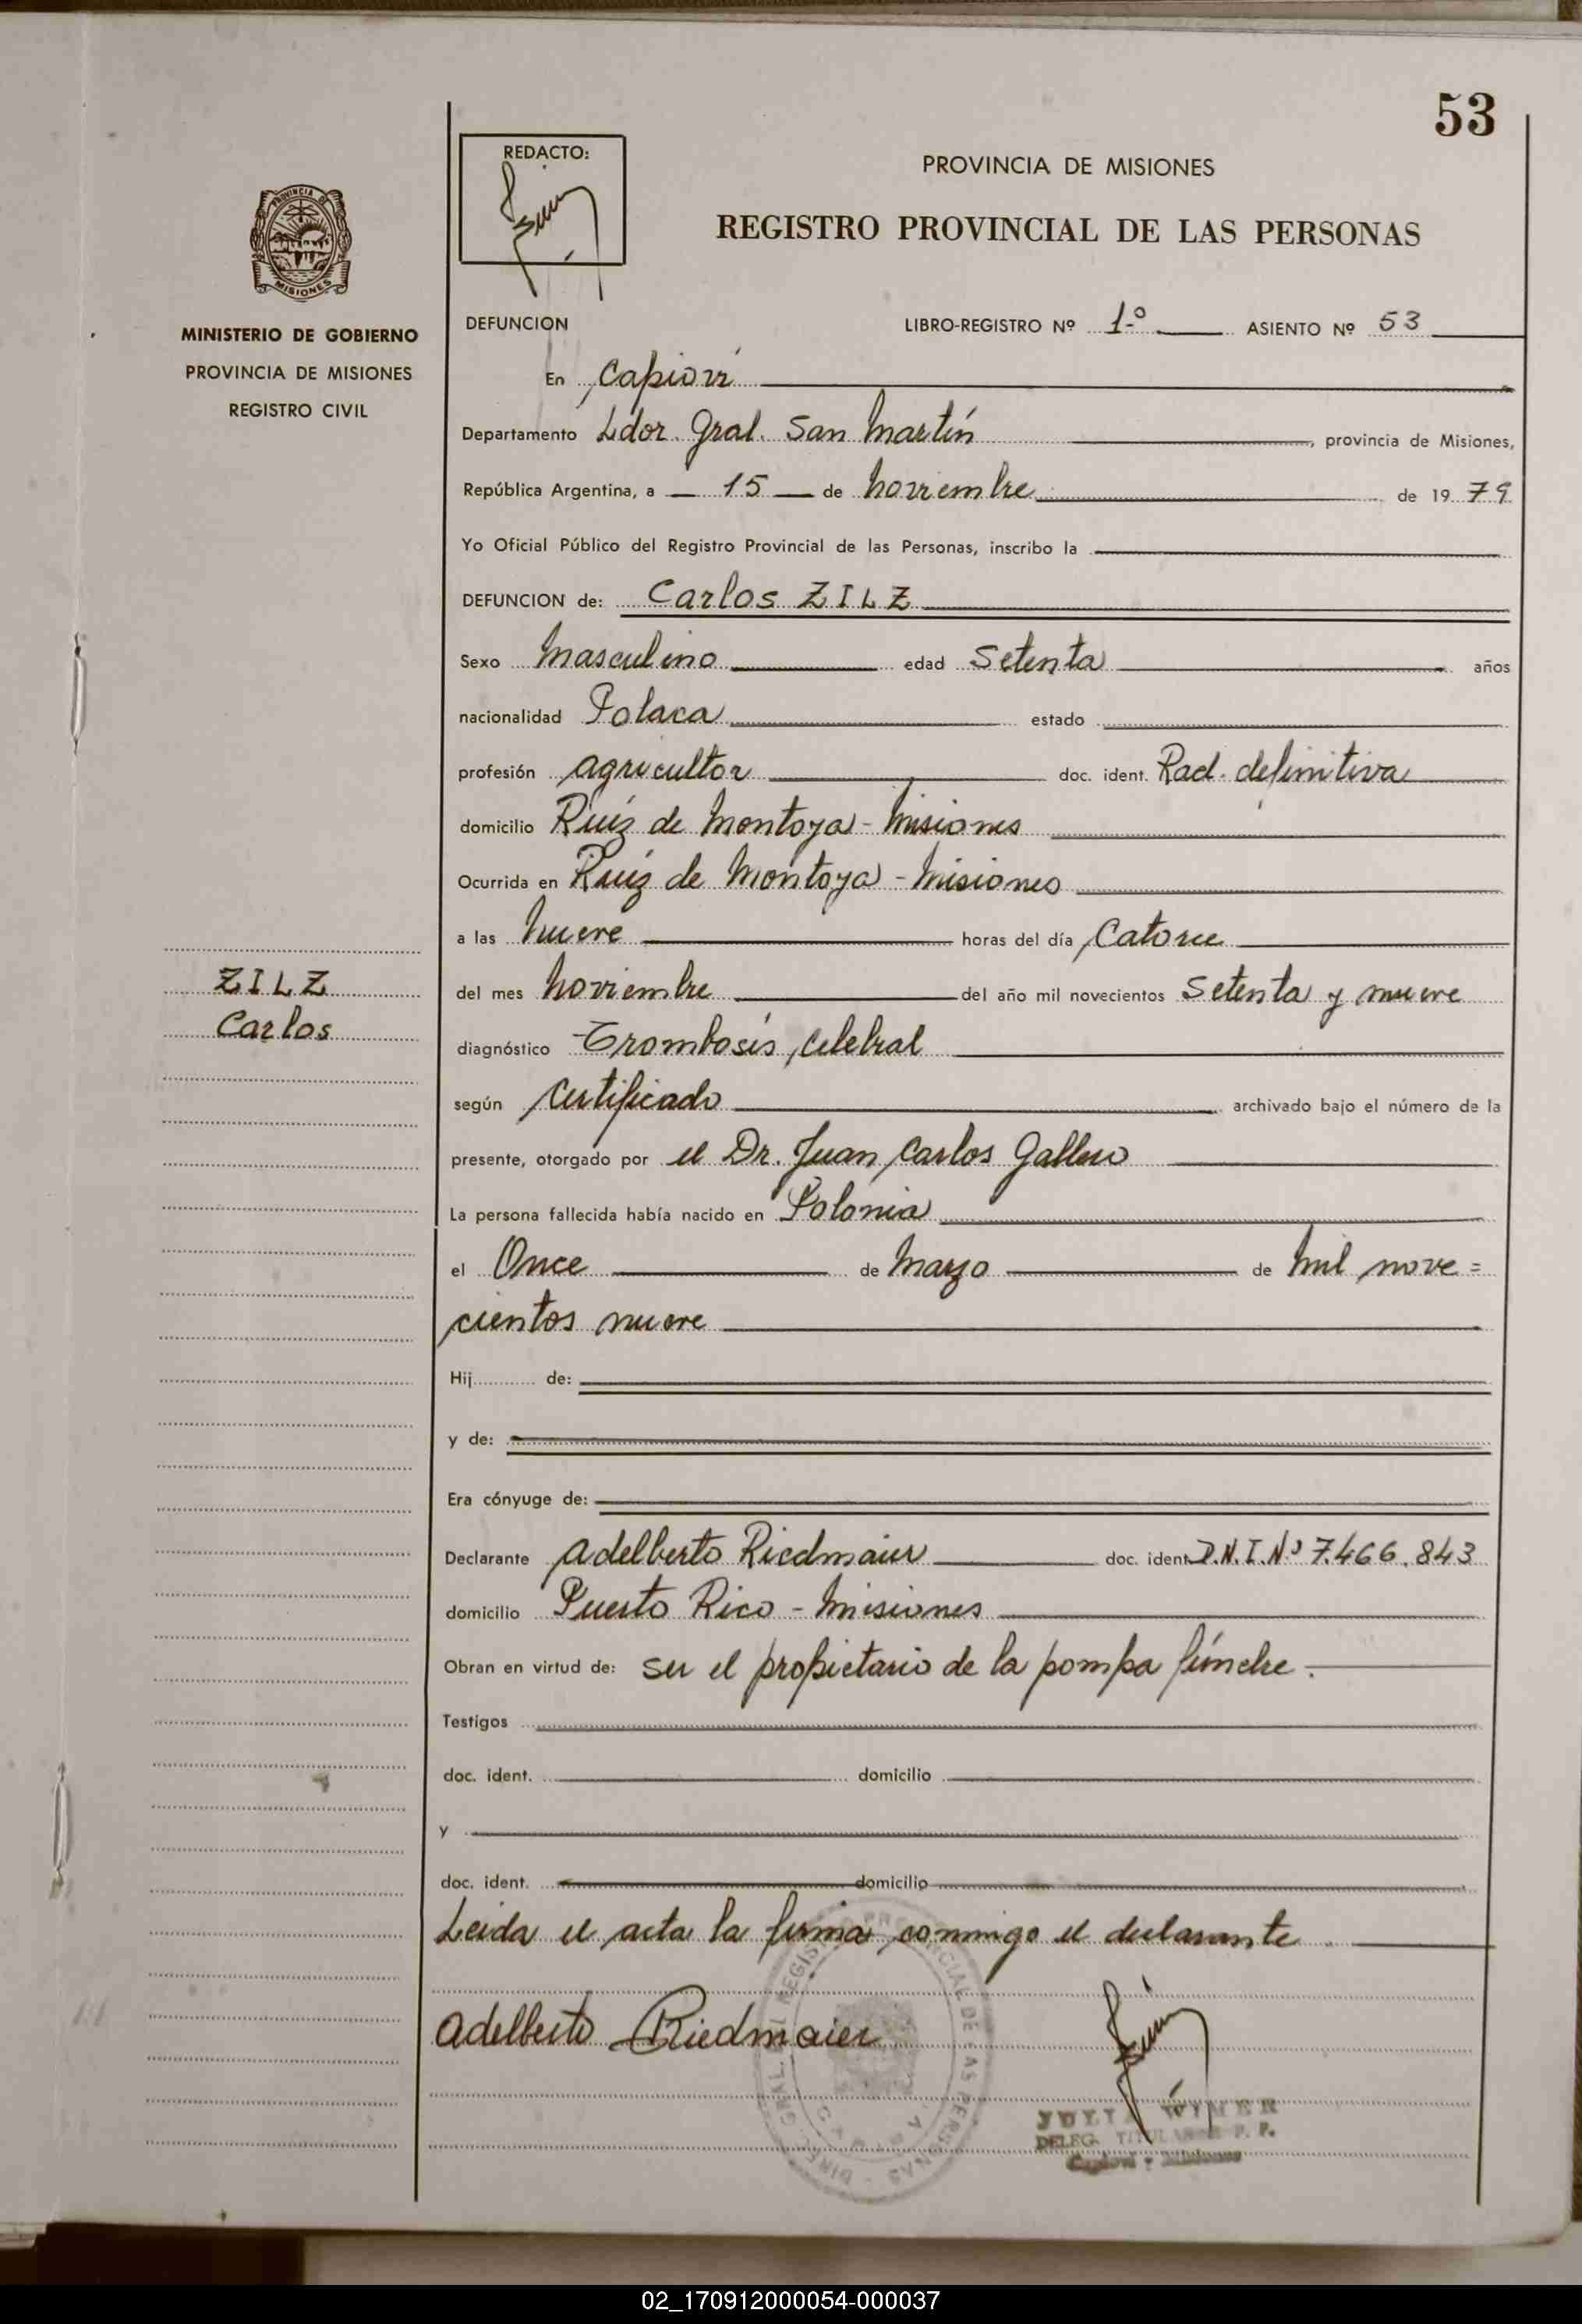 53
REDACTO:
PROVINCIA DE MISIONES
REGISTRO PROVINCIAL DE LAS PERSONAS
PROVINCIA DE
MISIONES
MINISTERIO DE GOBIERNO
PROVINCIA DE MISIONES
REGISTRO CIVIL
DEFUNCION LIBRO-REGISTRO Nº 1º ASIENTO Nº 53
En Capioví
Departamento Ldor. Gral. San Martín, provincia de Misiones,
República Argentina, a 15 de noviembre de 19 79
Yo Oficial Público del Registro Provincial de las Personas, inscribo la
DEFUNCION de: Carlos ZILZ
Sexo Masculino edad Setenta años
nacionalidad Polaca estado
profesión agricultor doc. ident. Rad. definitiva
domicilio Ruíz de Montoya - Misiones
Ocurrida en Ruíz de Montoya - Misiones
a las Nueve horas del día Catorce
ZILZ
Carlos
del mes noviembre del año mil novecientos Setenta y nueve
diagnóstico Trombosis celebral
según certificado archivado bajo el número de la
presente, otorgado por el Dr. Juan Carlos
La persona fallecida había nacido en Polonia
el Once de Marzo de mil nove=
cientos nueve
Hij de:
y de:
Era cónyuge de:
Declarante Adelberto Riedmaier doc. ident. D.N.I. Nº 7.466.843
domicilio Puerto Rico - Misiones
Obran en virtud de: ser el propietario de la pompa fúnebre.
Testigos
doc. ident. domicilio
y
doc. ident. domicilio
Leida el acta la firma conmigo el declarante
Adelberto Riedmaier
WIMER
DELEG. TITULAR R. P. P.
Capioví - Misiones
02_170912000054-000037